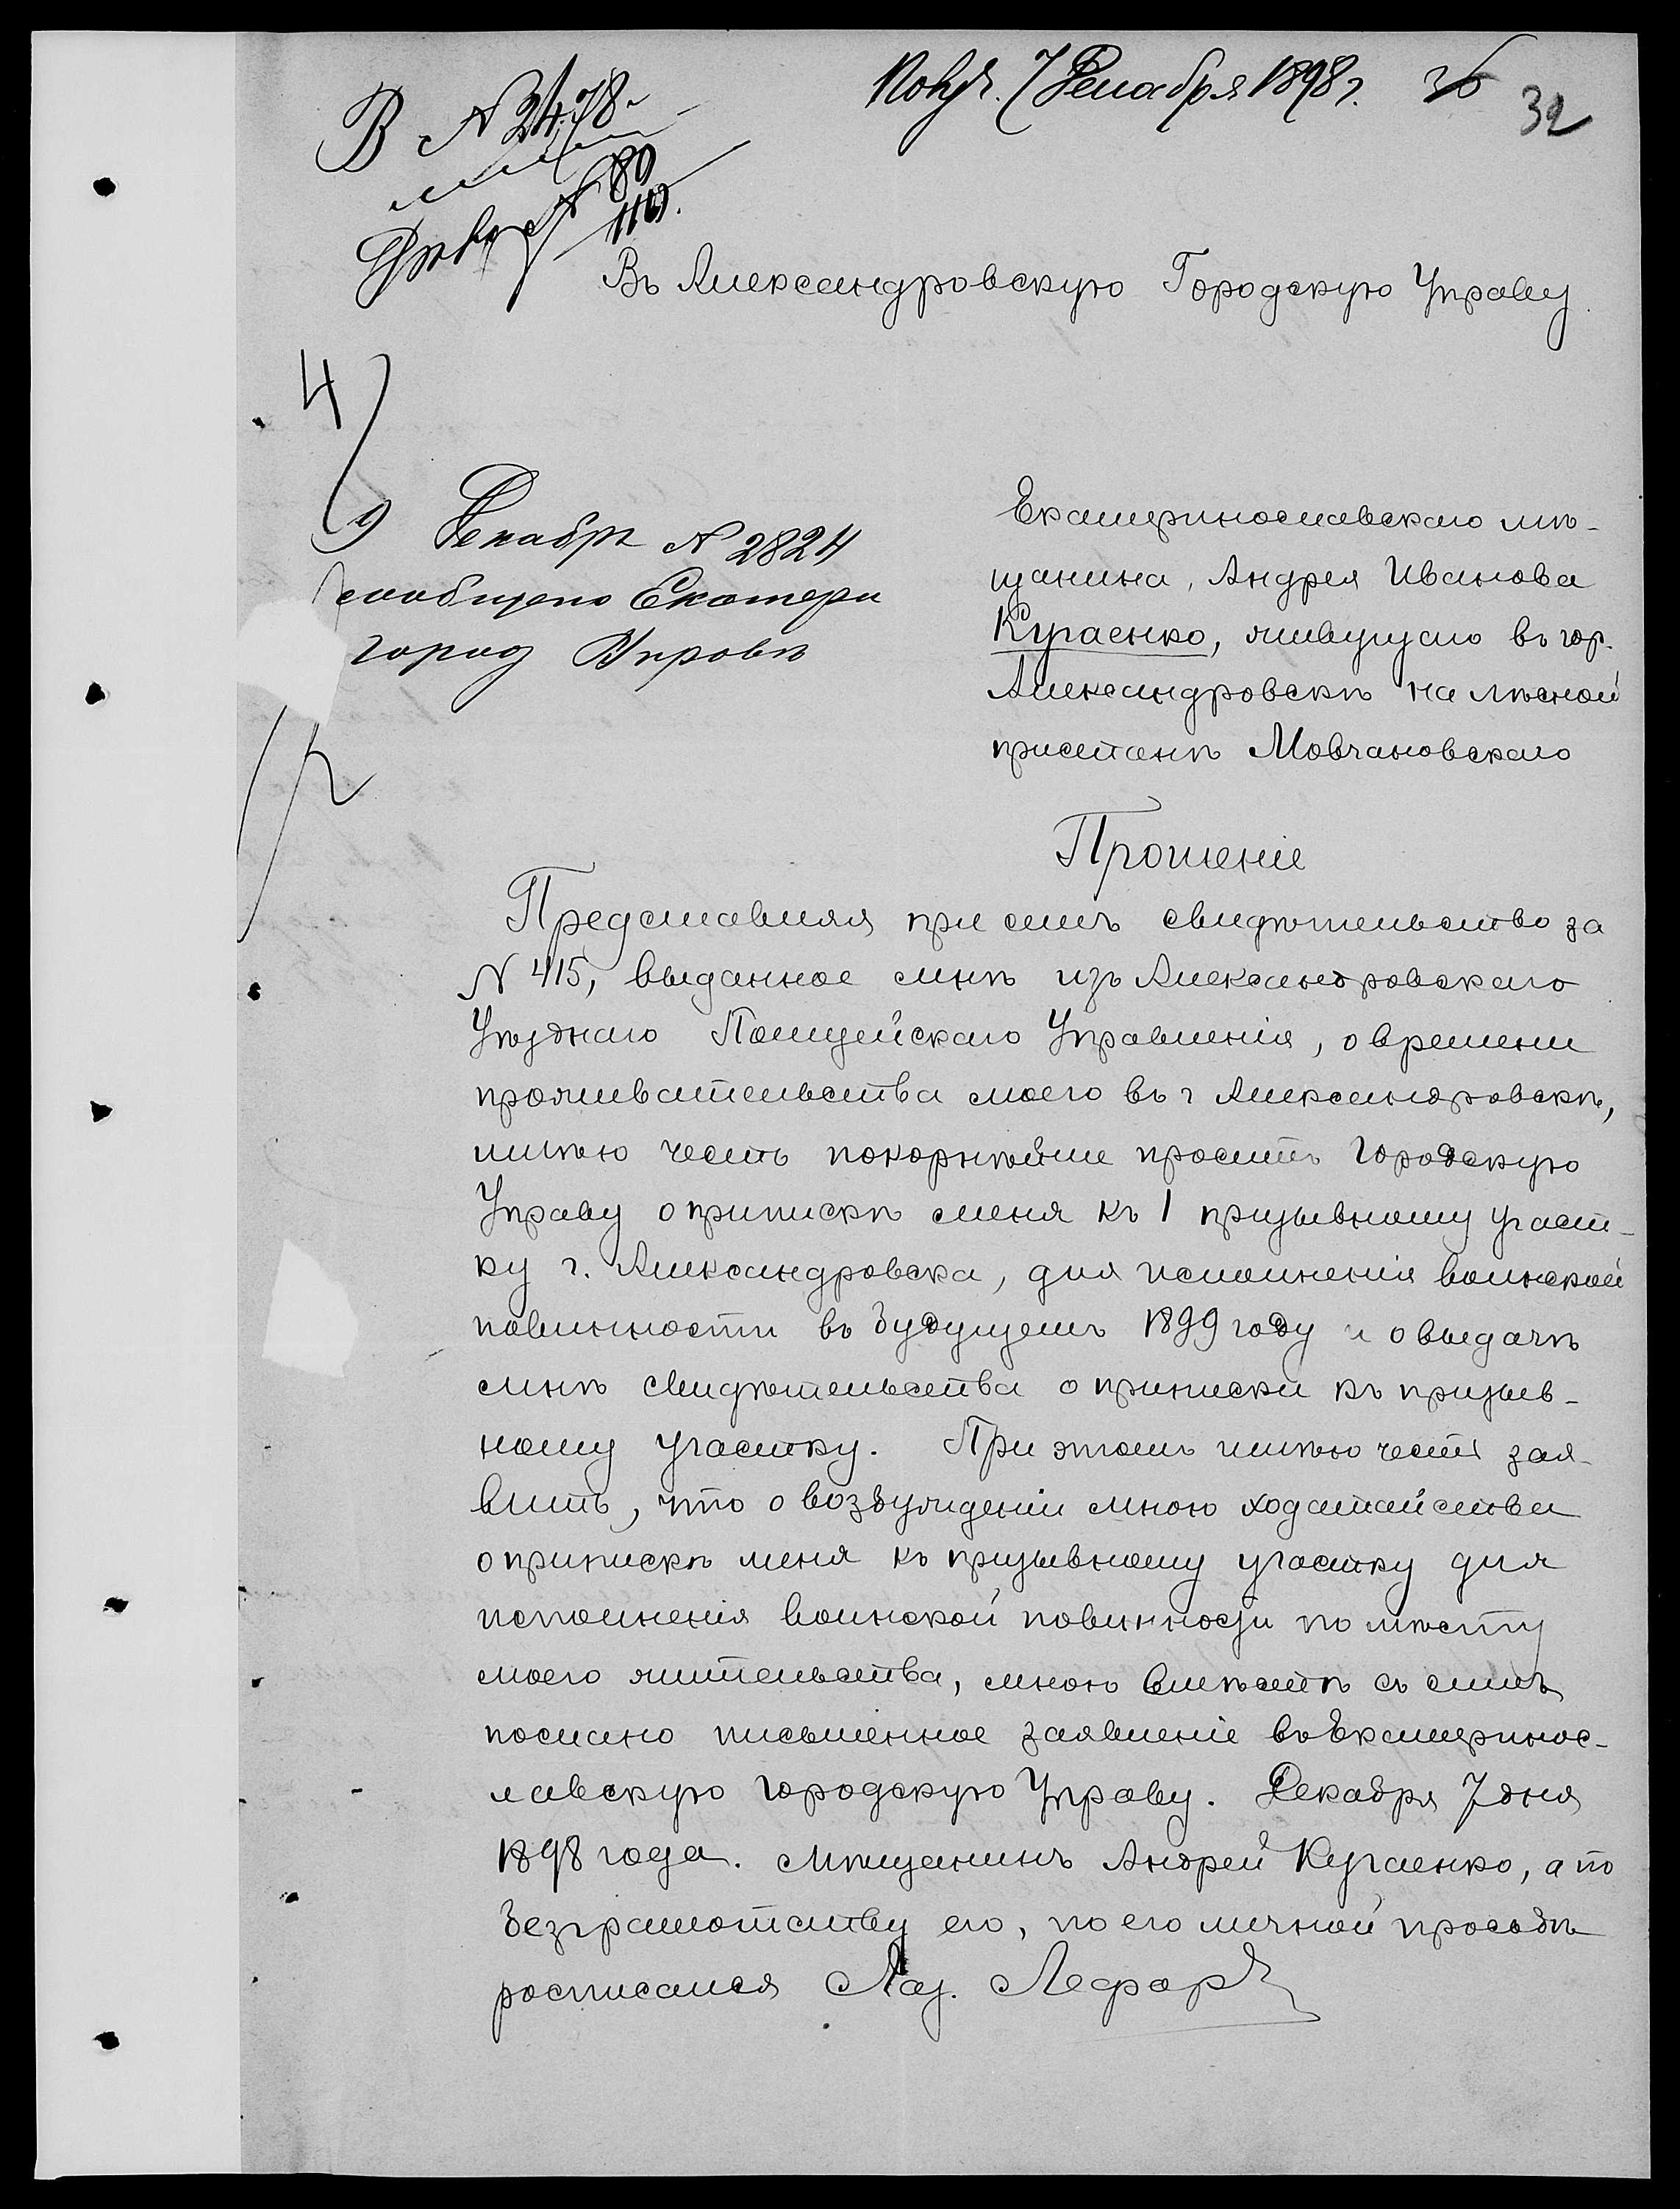 Получ. 7 Декабря 1898 г. 36
32
В № 2478
№ 80
110.
Въ Александровскую Городскую Управу.
4
9 Декабр № 2824
сообщено Екатери
город Управѣ
Екатеринославскаго мѣ-
щанина, Андрея Иванова
Кугаенко, живущаго въ гор.
Александровскѣ на лѣсной
пристанѣ Мовчановскаго
Прошеніе
Представляя при семъ свидѣтельство за
№ 415, выданное мнѣ изъ Александровскаго
Уѣзднаго Полицейскаго Управленія, о времени
проживательства моего въ г Александровскѣ,
имѣю честь покорнѣйше просить Городскую
Управу о припискѣ меня къ 1 призывному участ-
ку г. Александровска, для исполненія воинской
повинности въ будущемъ 1899 году и о выдачѣ
мнѣ свидѣтельства о приписки къ призыв-
ному участку. При этомъ имѣю честь зая-
вить, что о возбужденіи мною ходатайства
о припискѣ меня къ призывному участку для
исполненія воинской повинности по мѣсту
моего жительства, мною вмѣстѣ съ симъ
послано письменное заявленіе въ Екатеринос-
лавскую городскую Управу. Декабря 7 дня
1898 года. Мѣщанинъ Андрей Кугаенко, а по
безграмотству его, по его личной просьбѣ
росписался Лаз. Лефоръ